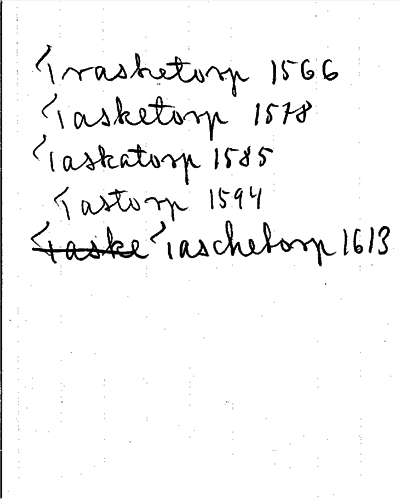 Trasketorp 1566
Tasketorp 1578
Taskatorp 1585
Tastorp 1594
Taske Taschetorp 1613